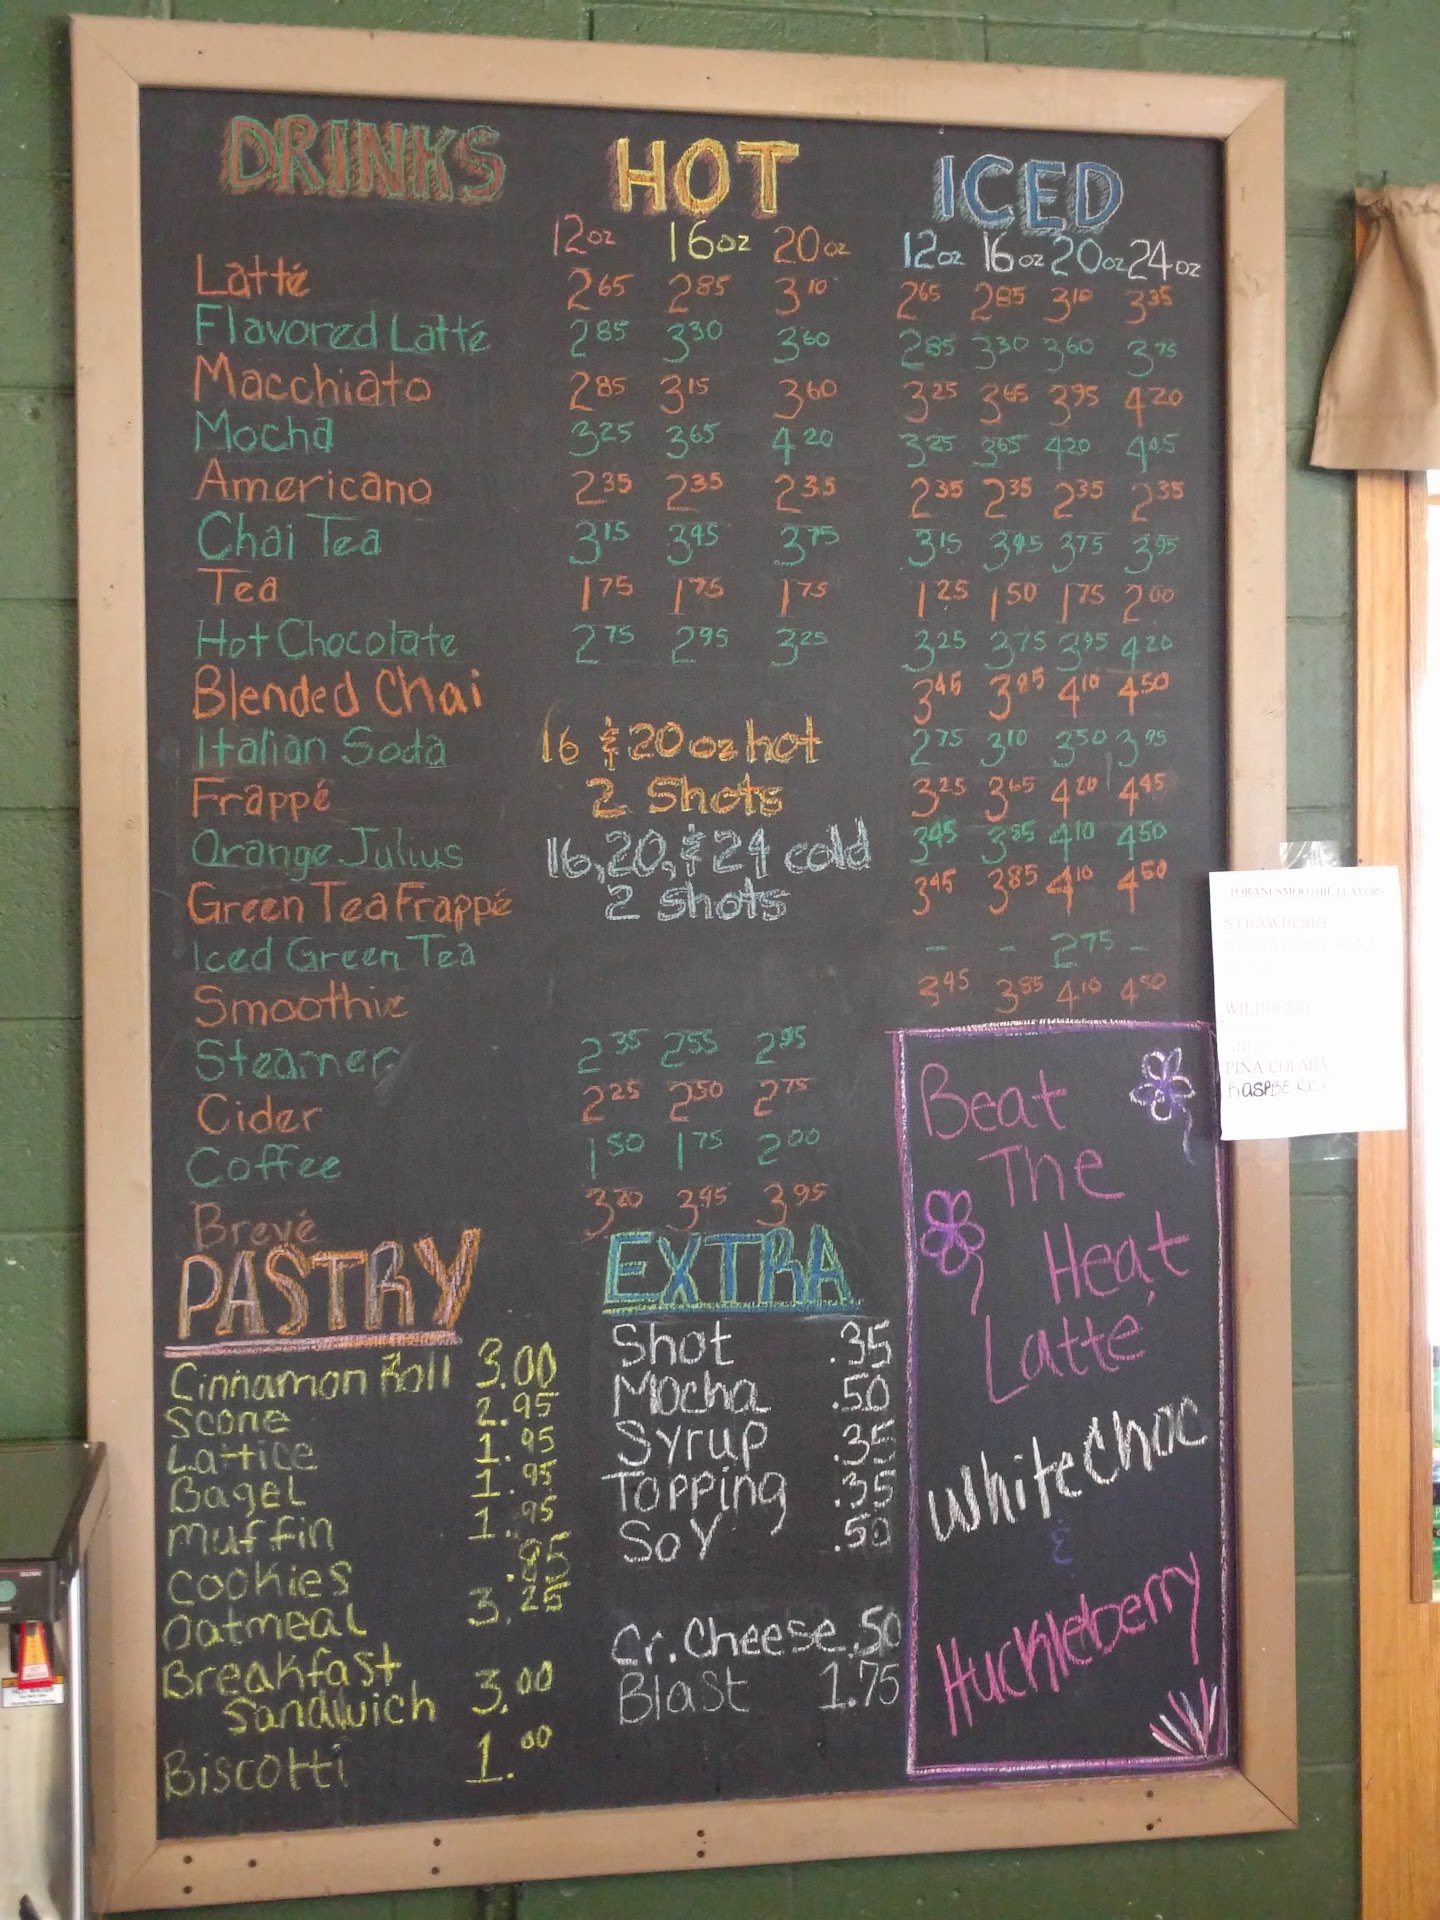 DRINKS HOT ICED
12oz 16oz 20oz 12oz 16oz 20oz 24oz
Latté 2.65 2.85 3.10 2.65 2.85 3.10 3.35
Flavored Latté 2.85 3.30 3.60 2.85 3.30 3.60 3.75
Macchiato 2.85 3.15 3.60 3.25 3.65 3.95 4.20
Mocha 3.25 3.65 4.20 3.25 3.65 4.20 4.45
Americano 2.35 2.35 2.35 2.35 2.35 2.35 2.35
Chai Tea 3.15 3.45 3.75 3.15 3.45 3.75 3.95
Tea 1.75 1.75 1.75 1.25 1.50 1.75 2.00
Hot Chocolate 2.75 2.95 3.25 3.25 3.75 3.95 4.20
Blended Chai 3.45 3.85 4.10 4.50
Italian Soda 16 & 20 oz hot 2.75 3.10 3.50 3.95
Frappé 2 Shots 3.25 3.65 4.20 4.45
Orange Julius 16, 20, & 24 cold 3.45 3.85 4.10 4.50
Green Tea Frappé 2 shots 3.45 3.85 4.10 4.50
Iced Green Tea - - 2.75 -
Smoothie 3.45 3.85 4.10 4.50
Steamer 2.35 2.55 2.95
Cider 2.25 2.50 2.75
Coffee 1.50 1.75 2.00
Brevé 3.20 3.45 3.95
PASTRY
Cinnamon Roll 3.00
Scone 2.95
Lattice 1.95
Bagel 1.95
Muffin 1.95
Cookies .85
Oatmeal 3.25
Breakfast
Sandwich 3.00
Biscotti 1.00
EXTRA
Shot .35
Mocha .50
Syrup .35
Topping .35
Soy .50
Cr. Cheese .50
Blast 1.75
Beat
The
Heat
Latté
White Choc
&
Huckleberry
TORANI SMOOTHIE FLAVORS
STRAWBERRY
WILDBERRY
PINA COLADA
RASPBERRY